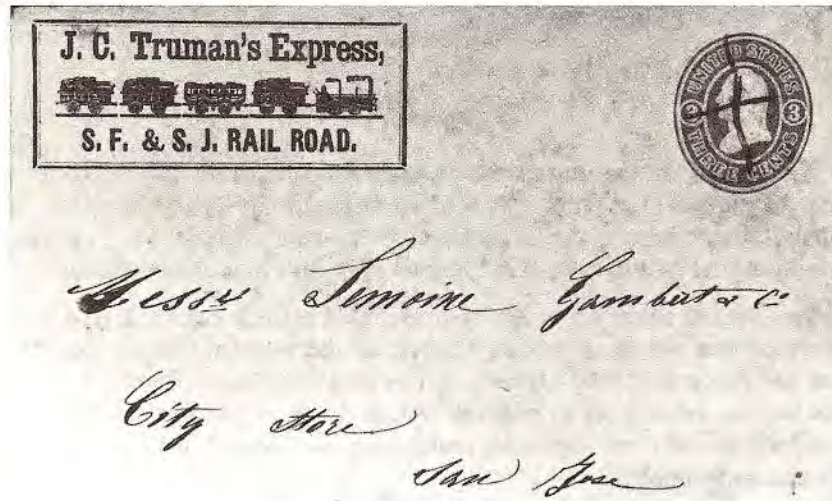 J. C. Truman's Express,
S. F. & S. J. RAIL ROAD.
UNITED STATES
3 3
THREE CENTS
Messrs Lemoine Gambert & Co
City Store
San Jose